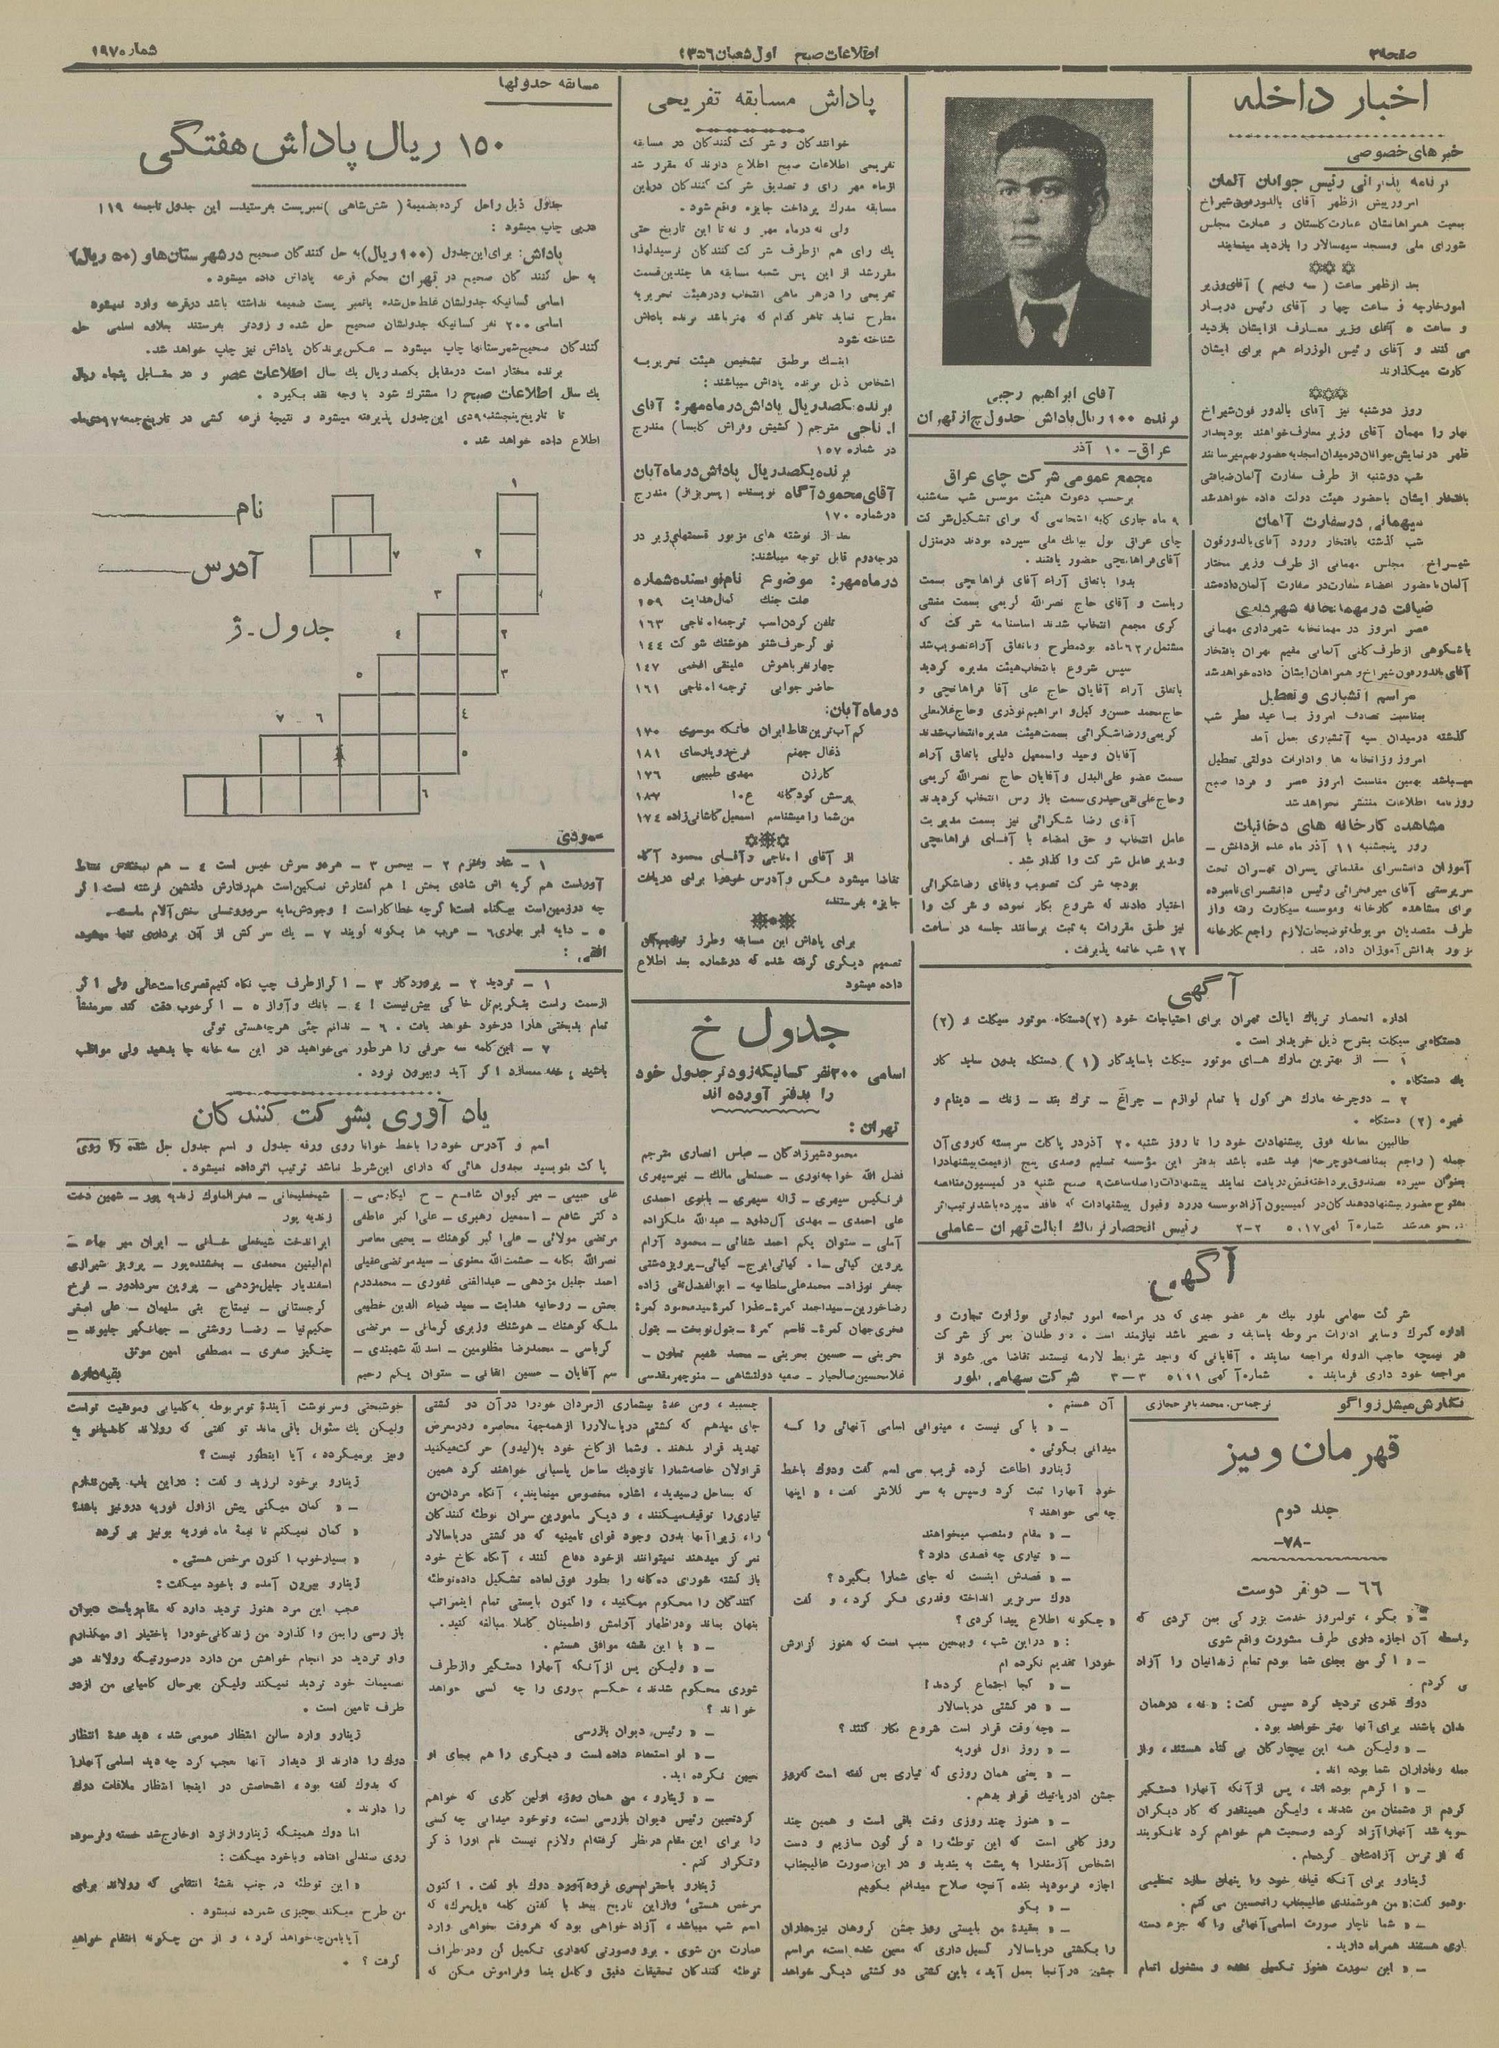 صفحه ۳
اطلاعات صبح اول شعبان ۱۳۵۶
شماره ۱۹۷۰
اخبار داخله
خبرهای خصوصی
برنامه پذیرائی رئیس جوانان آلمان
امروز پیش از ظهر آقای بالدور فون شیراخ
بمعیت همراهانشان عمارت گلستان و عمارت مجلس
شورای ملی و مسجد سپهسالار را بازدید مینمایند
بعد از ظهر ساعت ( سه و نیم ) آقای وزیر
امور خارجه و ساعت چهار آقای رئیس دربار
و ساعت ۵ آقای وزیر معارف از ایشان بازدید
می کنند و آقای رئیس الوزراء هم برای ایشان
کارت میگذارند
روز دوشنبه نیز آقای بالدور فون شیراخ
نهار را مهمان آقای وزیر معارف خواهند بود بعد از
ظهر در نمایش جوانان در میدان امجدیه حضور بهم میرسانند
شب دوشنبه از طرف سفارت آلمان ضیافتی
بافتخار ایشان با حضور هیئت دولت داده خواهد شد
میهمانی در سفارت آلمان
شب گذشته بافتخار ورود آقای بالدور فون
شیراخ مجلس مهمانی از طرف وزیر مختار
آلمان با حضور اعضاء سفارت در سفارت آلمان داده شد
ضیافت در مهمانخانه شهرداری
عصر امروز در مهمانخانه شهرداری مهمانی
باشکوهی از طرف کلنی آلمانی مقیم تهران بافتخار
آقای بالدور فون شیراخ و همراهان ایشان داده خواهد شد
مراسم آتشبازی و تعطیل
بمناسبت تصادف امروز با عید فطر شب
گذشته در میدان سپه آتشبازی بعمل آمد
امروز وزارتخانه ها و ادارات دولتی تعطیل
میباشد بهمین مناسبت امروز عصر و فردا صبح
روزنامه اطلاعات منتشر نخواهد شد
مشاهده کارخانه های دخانیات
روز پنجشنبه ۱۱ آذر ماه عده از دانش –
آموزان دانشسرای مقدماتی پسران تهران تحت
سرپرستی آقای میرفخرائی رئیس دانشسرای نامبرده
برای مشاهده کارخانه و موسسه سیگارت رفته و از
طرف متصدیان مربوطه توضیحات لازم راجع بکارخانه
مزبور بدانش آموزان داده شد .
آقای ابراهیم رجبی
برنده ۱۰۰ ریال پاداش جدول چ از تهران
عراق - ۱۰ آذر
مجمع عمومی شرکت چای عراق
برحسب دعوت هیئت موسس شب سه شنبه
۹ ماه جاری کلیه اشخاصی که برای تشکیل شرکت
چای عراق پول ببانک ملی سپرده بودند در منزل
آقای فراهانچی حضور یافتند .
بدوا باتفاق آراء آقای فراهانچی بسمت
ریاست و آقای حاج نصرالله کریمی بسمت منشی
گری مجمع انتخاب شدند اساسنامه شرکت که
مشتمل بر ۶۲ ماده بود مطرح و باتفاق آراء تصویب شد
سپس شروع بانتخاب هیئت مدیره گردید
باتفاق آراء آقایان حاج علی آقا فراهانچی و
حاج محمد حسن وکیل و ابراهیم نوذری و حاج غلامعلی
کریمی و رضا شکرائی بسمت هیئت مدیره انتخاب شدند
آقایان وحید و اسمعیل دلیلی باتفاق آراء
سمت عضو علی البدل و آقایان حاج نصرالله کریمی
و حاج علی نقی حیدری سمت بازرس انتخاب گردیدند
آقای رضا شکرائی نیز بسمت مدیریت
عامل انتخاب و حق امضاء با آقای فراهانچی
و مدیر عامل شرکت واگذار شد .
بودجه شرکت تصویب و باقای رضا شکرائی
اختیار دادند که شروع بکار نموده و شرکت را
نیز طبق مقررات به ثبت برسانند جلسه در ساعت
۱۲ شب خاتمه پذیرفت .
آگهی
اداره انحصار تریاک ایالت تهران برای احتیاجات خود (۲) دستگاه موتور سیکلت و (۲)
دستگاه بی سیکلت بشرح ذیل خریدار است .
۱ – از بهترین مارک های موتور سیکلت باسایدکار (۱) دستگاه بدون ساید کار
یک دستگاه .
۲ – دوچرخه مارک هرکول با تمام لوازم – چراغ – ترک بند – زنگ – دینام و
غیره (۲) دستگاه .
طالبین معامله فوق پیشنهادات خود را تا روز شنبه ۲۰ آذر در پاکات سربسته که روی آن
جمله ( راجع بمناقصه دوچرخه ) قید شده باشد بدفتر این مؤسسه تسلیم و صدی پنج از قیمت پیشنهاد را
بعنوان سپرده بصندوق پرداخته قبض دریافت نمایند پیشنهادات راس ساعت ۹ صبح شنبه در کمیسیون مناقصه
مفتوح حضور پیشنهاد دهندگان در کمیسیون آزاد موسسه در رد و قبول پیشنهادات که فاقد سپرده باشد ترتیب اثر
شماره آگهی ۵۰۱۷ ۲-۲ رئیس انحصار تریاک ایالت تهران - عاملی
آگهی
شرکت سهامی بلور بیک نفر عضو جدی که در مراجعه امور تجارتی بوزارت تجارت و
اداره گمرک و سایر ادارات مربوطه باسابقه و بصیر باشد نیازمند است . داوطلبان بمرکز شرکت
در تیمچه حاجب الدوله مراجعه نمایند . آقایانی که واجد شرایط لازمه نیستند تقاضا می شود از
مراجعه خود داری فرمایند . شماره آگهی ۵۱۱۱ ۳-۳ شرکت سهامی بلور
پاداش مسابقه تفریحی
خوانندگان و شرکت کنندگان در مسابقه
تفریحی اطلاعات صبح اطلاع دارند که مقرر شد
از ماه مهر رای و تصدیق شرکت کنندگان در این
مسابقه مدرک پرداخت جایزه واقع شود .
ولی نه در ماه مهر و نه تا این تاریخ حتی
یک رای هم از طرف شرکت کنندگان نرسید لهذا
مقرر شد از این پس شعبه مسابقه ها چندین قسمت
تفریحی را در هر ماهی انتخاب و در هیئت تحریریه
مطرح نماید تا هر کدام که بهتر باشد برنده پاداش
شناخته شود
اینک بر طبق تشخیص هیئت تحریریه
اشخاص ذیل برنده پاداش میباشند :
برنده یکصد ریال پاداش در ماه مهر: آقای
ا. ناجی مترجم ( کشیش و فراش کلیسا ) مندرج
در شماره ۱۵۷
برنده یکصد ریال پاداش در ماه آبان
آقای محمود آگاه نویسنده ( پسر بزاز ) مندرج
در شماره ۱۷۰
بعد از نوشته های مزبور قسمتهای زیر در
درجه دوم قابل توجه میباشند:
در ماه مهر: موضوع نام نویسنده شماره
علت جنگ کمال هدایت ۱۵۹
تلفن کردن اسب ترجمه ا. ناجی ۱۶۳
نوکر حرف شنو هوشنگ شوکت ۱۴۴
چهار نفر باهوش علینقی افخمی ۱۴۷
حاضر جوابی ترجمه ا. ناجی ۱۶۱
در ماه آبان:
کم آب ترین نقاط ایران ملکه موسوی ۱۷۰
ذغال جهنم فرخ دو پارسای ۱۸۱
کارزن مهدی طبیبی ۱۷۶
پرسش کودکانه ع ۱۰ ۱۸۷
من شما را میشناسم اسمعیل کاشانی زاده ۱۷۴
از آقای ا. ناجی و آقای محمود آگاه
تقاضا میشود عکس و آدرس خود را برای دریافت
جایزه بفرستند
برای پاداش این مسابقه و طرز
تصمیم دیگری گرفته شده که در شماره بعد اطلاع
داده میشود
جدول خ
اسامی ۲۰۰ نفر کسانیکه زودتر جدول خود
را بدفتر آورده اند
تهران :
محمود شیرزادگان – عباس انصاری مترجم
فضل الله خواجه نوری – حسنعلی مالک – نیر سپهری
فرنگیس سپهری – ژاله سپهری – بانوی احمدی
علی احمدی – مهدی آل داود – عبدالله ملکزاده
آملی – ستوان یکم احمد شفائی – محمود آرام
پروین کیائی – ا. کیائی ایرج – کیائی – پرویز دشتی
جعفر نوزاد – محمدعلی سلطانیه – ابوالفضل تقی زاده
رضا خورین – سید احمد کمرۀ – عذرا کمرۀ سید محمود کمرۀ
فخری جهان کمرۀ – قاسم کمرۀ – بتول نوبخت – بتول
بحرینی – حسین بحرینی – محمد شفیع تعاون –
غلامحسین صالحیار – صفیه دولتشاهی – منوچهر مقدسی
مسابقه جدولها
۱۵۰ ریال پاداش هفتگی
جدول ذیل را حل کرده بضمیمۀ ( شش شاهی ) تمبر پست بفرستید – این جدول تا جمعه ۱۱۹
دی چاپ میشود :
پاداش: برای این جدول (۱۰۰ ریال) به حل کنندگان صحیح در شهرستان ها و (۵۰ ریال)
به حل کنندگان صحیح در تهران بحکم قرعه پاداش داده میشود .
اسامی کسانیکه جدولشان غلط حل شده یا تمبر پست ضمیمه نداشته باشد در قرعه وارد نمیشود
اسامی ۲۰۰ نفر کسانیکه جدولشان صحیح حل شده و زودتر بفرستند بعلاوه اسامی حل
کنندگان صحیح شهرستانها چاپ میشود – عکس برندگان پاداش نیز چاپ خواهد شد.
برنده مختار است در مقابل یکصد ریال یک سال اطلاعات عصر و در مقابل پنجاه ریال
یک سال اطلاعات صبح را مشترک شود یا وجه نقد بگیرد .
تا تاریخ پنجشنبه ۹ دی این جدول پذیرفته میشود و نتیجۀ قرعه کشی در تاریخ جمعه ۱۷ دی ماه
اطلاع داده خواهد شد .
نام
آدرس
جدول - ژ
۱
۲
۳
۴
۵
۶
۷
۷
۱
۲
۳
۴
۵
۶
عمودی
۱ – شاد و خرم ۲ – بیحس ۳ – هر دو سرش خیس است ۴ –
آور است هم گریه اش شادی بخش ! هم گفتارش نمکین است هم رفتارش دلنشین فرشته است ! گر
چه در زمین است بیگناه است ! گرچه خطا کار است ! وجودش مایه سرور و تسلی بخش آلام ماست .
۵ – دایه ابر بهاری ۶ – عرب ها بگونه گویند ۷ – یک سرکش از آن برداری تنها میشود
افقی :
۱ – تردید ۲ – پروردگار ۳ – اگر از طرف چپ نگاه کنیم قصری است عالی ولی اگر
از سمت راست بنگریم تل خاکی بیش نیست ! ۴ – بانگ و آواز ۵ – اگر خوب دقت کند سرمنشأ
تمام بدبختی ها را در خود خواهد یافت . ۶ – ندانم چئی هرچه هستی توئی
۷ – این کلمه سه حرفی را هرطور می خواهید در این سه خانه جا بدهید ولی مواظب
باشید ، خفه میسازد اگر آید و بیرون نرود .
یاد آوری بشرکت کنندگان
اسم و آدرس خود را باخط خوانا روی ورقه جدول و اسم جدول حل شده را روی
پاکت بنویسید بجدول هائی که دارای این شرط نباشد ترتیب اثر داده نمیشود .
علی حبیبی – میر کیوان شافع – ح لیکارسی –
دکتر شافع – اسمعیل رهبری – علی اکبر عاطفی
مرتضی مولائی – علی اکبر کوهنک – یحیی معاصر
نصرالله یگانه – حشمت الله معنوی – سید مرتضی عقیلی
احمد جلیل مژدهی – عبدالغنی غفوری – محمد درم
بخش – روحانیه هدایت – سید ضیاء الدین خطیبی
ملکه کوهنک – هوشنگ وزیری کرمانی – مرتضی
کرباسی – محمدرضا مظلومین – اسدالله شهبندی –
سم آقایان – حسین اتقانی – ستوان یکم رحیم
شیخعلیخانی – فخر الملوک زندیه پور – شهین دخت
زندیه پور
ایراندخت شیخعلی خانی – ایران مهر
ام البنین محمدی – بخشنده پور – پرویز شیرازی
اسفندیار جلیل مژدهی – پروین سردادور – فرخ
گرجستانی – نیمتاج بنی سلیمان – علی اصغر
حکیم نیا – رضا روشنی – جهانگیر جلیوند –
چنگیز صفری – مصطفی امین موثق
بقیه دارد
نگارش میشل زواگو
ترجمه س. محمد باقر حجازی
قهرمان ونیز
جلد دوم
-۷۸-
۶۶ – دو نفر دوست
– « بگو ، تو امروز خدمت بزرگی بمن کردی که
واسطه آن اجازه داری طرف مشورت واقع شوی
– « اگر من بجای شما بودم تمام زندانیان را آزاد
می کردم .
دوک قدری تردید کرد سپس گفت : « نه ، در همان
زندان باشند برای آنها بهتر خواهد بود .
– « ولیکن همه این بیچارگان بی گناه هستند ، و از
جمله وفاداران شما بوده اند .
– « اگر هم بوده اند ، پس از آنکه آنها را دستگیر
کردم از دشمنان من شدند ، ولیکن همینقدر که کار دیگران
تسویه شد آنها را آزاد کرده و صحبت هم خواهم کرد تا نگویند
که از ترس آزادشان کرده ام .
ژینارو برای آنکه قیافه خود را پنهان سازد تعظیمی
نموده گفت : « من هوشمندی عالیجناب را تحسین می کنم .
– « شما ناچار صورت اسامی آنهائی را که جزء دسته
تیاری هستند همراه دارید .
– « این صورت هنوز تکمیل نشده و مشغول اتمام
آن هستم .
– « با کی نیست ، میتوانی اسامی آنهائی را که
میدانی بگوئی .
ژینارو اطاعت کرده قریب سی اسم گفت و دوک باخط
خود آنها را ثبت کرد و سپس به سر کلانتر گفت ، « اینها
چه می خواهند ؟
– « مقام و منصب میخواهند
– « تیاری چه قصدی دارد ؟
– « قصدش اینست که جای شما را بگیرد ؟
دوک سر بزیر انداخته و قدری فکر کرد ، و گفت
« چگونه اطلاع پیدا کردی ؟
: « در این شب ، و بهمین سبب است که هنوز گزارش
خود را تقدیم نکرده ام
– « کجا اجتماع کردند !
– « در کشتی دریاسالار
– « چه وقت قرار است شروع بکار کنند ؟
– « روز اول فوریه
– « یعنی همان روزی که تیاری بمن گفته است که روز
جشن ادریاتیک قرار بدهم .
– « هنوز چند روزی وقت باقی است و همین چند
روز کافی است که این توطئه را دگرگون سازیم و دست
اشخاص آزمند را به پشت به بندید و در این صورت عالیجناب
اجازه فرمودید بنده آنچه صلاح میدانم بگویم
– « بگو
– « بعقیدۀ من بایستی روز جشن گروهان نیزه داران
را بکشتی دریاسالار گسیل داری که معین شده است مراسم
جشن در آنجا بعمل آید ، باین کشتی دو کشتی دیگر خواهد
چسبید ، و من عدۀ بیشماری از مردان خود را در آن دو کشتی
جای میدهم که کشتی دریاسالار را از همه جهة محاصره و در معرض
تهدید قرار بدهند . و شما از کاخ خود به (لیدو) حرکت میکنید
قراولان خاصه شما را تا نزدیک ساحل پاسبانی خواهند کرد همین
که بساحل رسیدید ، اشاره مخصوص مینمایند ، آنگاه مردان من
تیاری را توقیف میکنند ، و دیگر مامورین سران توطئه کنندگان
را ، زیرا آنها بدون وجود قوای تامینیه که در کشتی دریاسالار
تمرکز میدهند نمیتوانند از خود دفاع کنند ، آنگاه بکاخ خود
باز گشته شورای ده گانه را بطور فوق العاده تشکیل داده توطئه
کنندگان را محکوم میکنید ، و اکنون بایستی تمام اینمراتب
پنهان بماند و در اظهار آرامش و اطمینان کاملا مبالغه کنید .
– « با این نقشه موافق هستم .
– « ولیکن پس از آنکه آنها را دستگیر و از طرف
شوری محکوم شدند ، حکم شوری را چه کسی خواهد
خواند ؟
– « رئیس دیوان بازرسی
– « او استعفاء داده است و دیگری را هم بجای او
معین نکرده اید .
– « ژینارو ، من همان روز ، اولین کاری که خواهم
کرد تعیین رئیس دیوان بازرسی است ، و تو خود میدانی چه کسی
را برای این مقام در نظر گرفته ام و لازم نیست نام او را ذکر
و تکرار کنم .
ژینارو با احترام سری فرود آورد دوک باو گفت . اکنون
مرخص هستی و از این تاریخ ببعد با گفتن کلمه « پل مرگ » که
اسم شب میباشد ، آزاد خواهی بود که هر وقت بخواهی وارد
عمارت من شوی . برو و صورتی که داری تکمیل کن و در طراف
توطئه کنندگان تحقیقات دقیق و کامل بنما و فراموش مکن که
خوشبختی و سرنوشت آیندۀ تو مربوطه به کامیابی و موفقیت تو است
ولیکن یک سئوال باقی ماند تو گفتی که رولاند کاندیانو به
ونیز برمیگردد ، آیا اینطور نیست ؟
ژینارو بر خود لرزید و گفت : در این باب یقین ندارم
– « گمان میکنی پیش از اول فوریه در ونیز باشد؟
« گمان نمیکنم تا نیمۀ ماه فوریه بونیز برگردد
« بسیار خوب اکنون مرخص هستی .
ژینارو بیرون آمده و با خود میگفت :
عجب این مرد هنوز تردید دارد که مقام ریاست دیوان
بازرسی را بمن واگذارد من زندگانی خود را باختیار او میگذارم
و او تردید در انجام خواهش من دارد در صورتیکه رولاند در
تصمیمات خود تردید نمیکند ولیکن بهرحال کامیابی من از دو
طرف تامین است .
ژینارو وارد سالن انتظار عمومی شد ، دید عدۀ انتظار
دوک را دارند از دیدار آنها عجب کرد چه دید اسامی آنها را
که بدوک گفته بود ، اشخاصش در اینجا انتظار ملاقات دوک
را دارند .
اما دوک همینکه ژینارو از نزد او خارج شد خسته و فرسوده
روی صندلی افتاده و باخود میگفت :
« این توطئه در جنب نقشۀ انتقامی که رولاند برای
من طرح میکند بچیزی شمرده نمیشود .
آیا با من چه خواهد کرد ، و از من چگونه انتقام خواهد
گرفت ؟ .